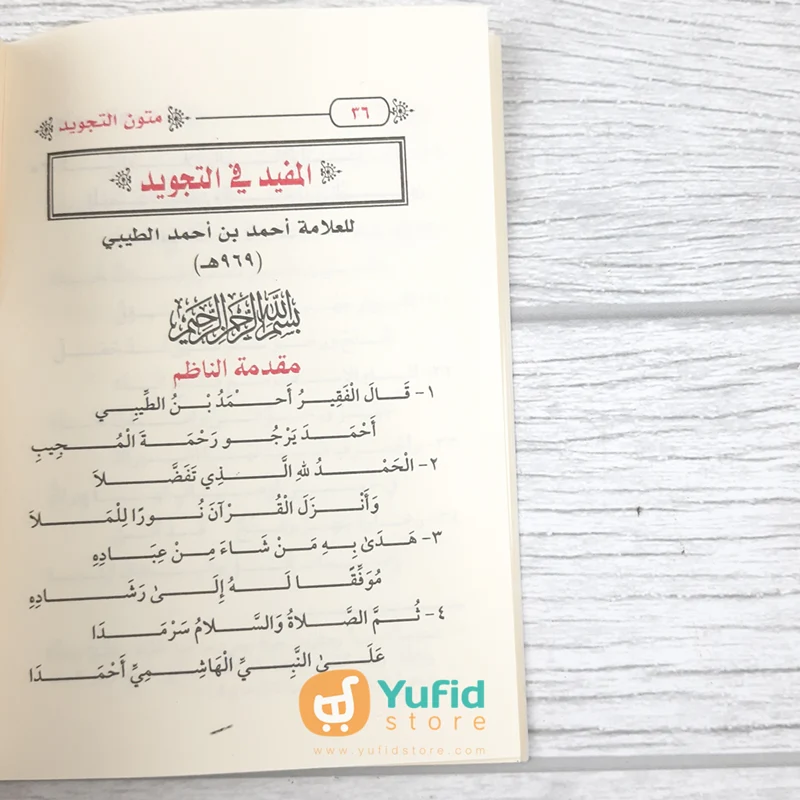 متون التجويد ٣٦
المفيد في التجويد
للعلامة أحمد بن أحمد الطيبي
(٩٦٩هـ)
بسم الله الرحمن الرحيم
مقدمة الناظم
١- قَالَ الْفَقِيرُ أَحْمَدُ بْنُ الطِّيبِي
أَحْمَدَ يَرْجُو رَحْمَةَ الْمُجِيبِ
٢- الْحَمْدُ لله الَّذِي تَفَضَّلاَ
وَأَنْزَلَ الْقُرْآنَ نُورًا لِلْمَلاَ
٣- هَدَىٰ بِهِ مَنْ شَاءَ مِنْ عِبَادِهِ
مُوَفِّقًا لَهُ إِلَىٰ رَشَادِهِ
٤- ثُمَّ الصَّلاَةُ وَالسَّلاَمُ سَرْمَدَا
عَلَىٰ النَّبِيِّ الْهَاشِمِيِّ أَحْمَدَا
Yufid
store
www.yufidstore.com